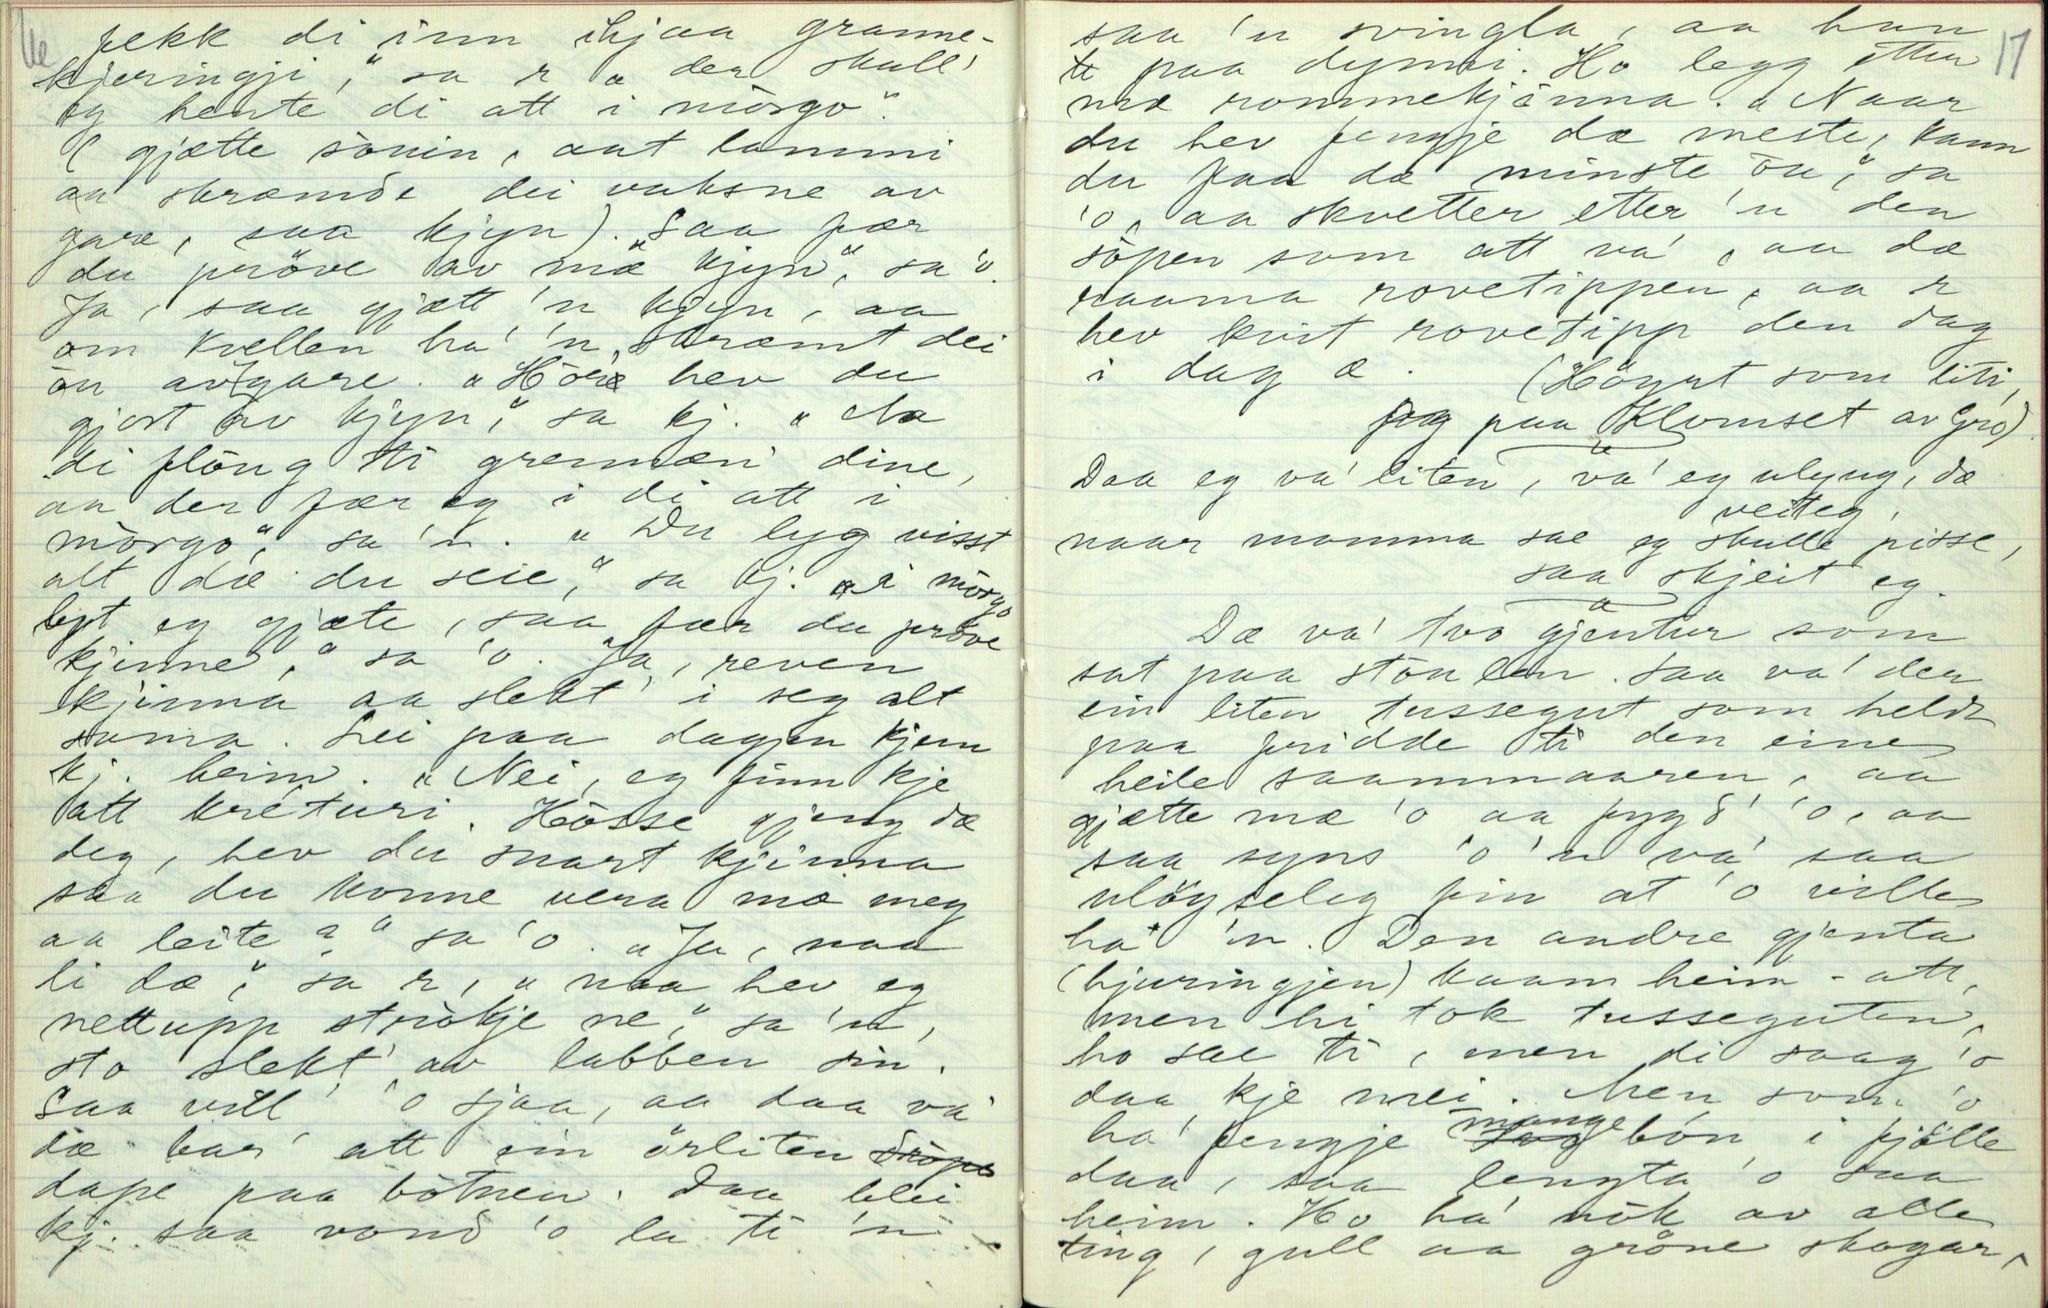 16
fekk di inn ihjaa granne-
kjeringji," sa r "der skull'
eg hente di att i mòrgo".
(gjætte sòuin, aat lammi
aa skræmde dei vaksne av
gare, saa kjyn). Saa fær
du pröve av mæ kjyn", sa 'o.
Ja, saa gjætt 'n kjyn, aa
om kvellen ha' 'n skræmt dei
òu avgare. "Hòre hev du
gjort av kjyn," sa kj. "Aa
di flòug ti grennæn' dine,
aa der fær eg i di att i
mòrgo", sa 'n. "Du lyg visst
alt dæ du seie," sa kj. "i mòrgo
lyt eg gjæte, saa fær du pröve
kjinne," sa 'o. Ja, reven
kjinna aa slekt' i seg alt
sama. Lei paa dagjen kjem
kj. heim. "Nei, eg finn kje
att krétúri. Hòsse gjeng dæ
deg, hev du snart kjinna
saa du konne vera mæ meg
aa leite?" sa 'o. "Ja, naa
li dæ," sa r, "naa hev eg
nettupp stròkje ne," sa 'n,
sto slekt' av labben sin.
Saa vill' 'o sjaa, aa daa va'
dæ bar' att ein örliten
dape paa bòtnen. Daa blei
kj. saa vond 'o la ti 'n
17
saa 'n svingla, aa han
te paa dynni. Ho legg etter
mæ rommekjinna. "Naar
du hev fengje dæ meste, kann
du faa dæ minste òu," sa
'o, aa skvetter etter 'n den
söpen som att va', aa dæ
raama rovetippen, aa r
hev kvit rovetipp den dag
i dag æ. (Höyrt som liti,
paa Klomset av Gro).
Daa eg va' liten, va' eg ulyug, dæ
veit eg,
naar mamma sae eg skulle pisse,
saa skjeit eg.
Dæ va' tvo gjentur som
sat paa stòulen. Saa va' der
ein liten tussegut som heldt
paa fridde ti den eine
heile saammaaren, aa
gjætte mæ 'o aa fygd' 'o, aa
saa syns 'o 'n va' saa
ulögseleg fin at 'o ville
ha' 'n. Den andre gjenta
(hjuringjen) kaam heim-att,
men hi tok tusseguten,
ho sae ti, men di saag 'o
daa kje mei. Men som 'o
ha' fengje mange bón i fjölle
daa, saa lengta 'o saa
heim. Ho ha' nòk av alle
ting, gull aa gröne skogar,